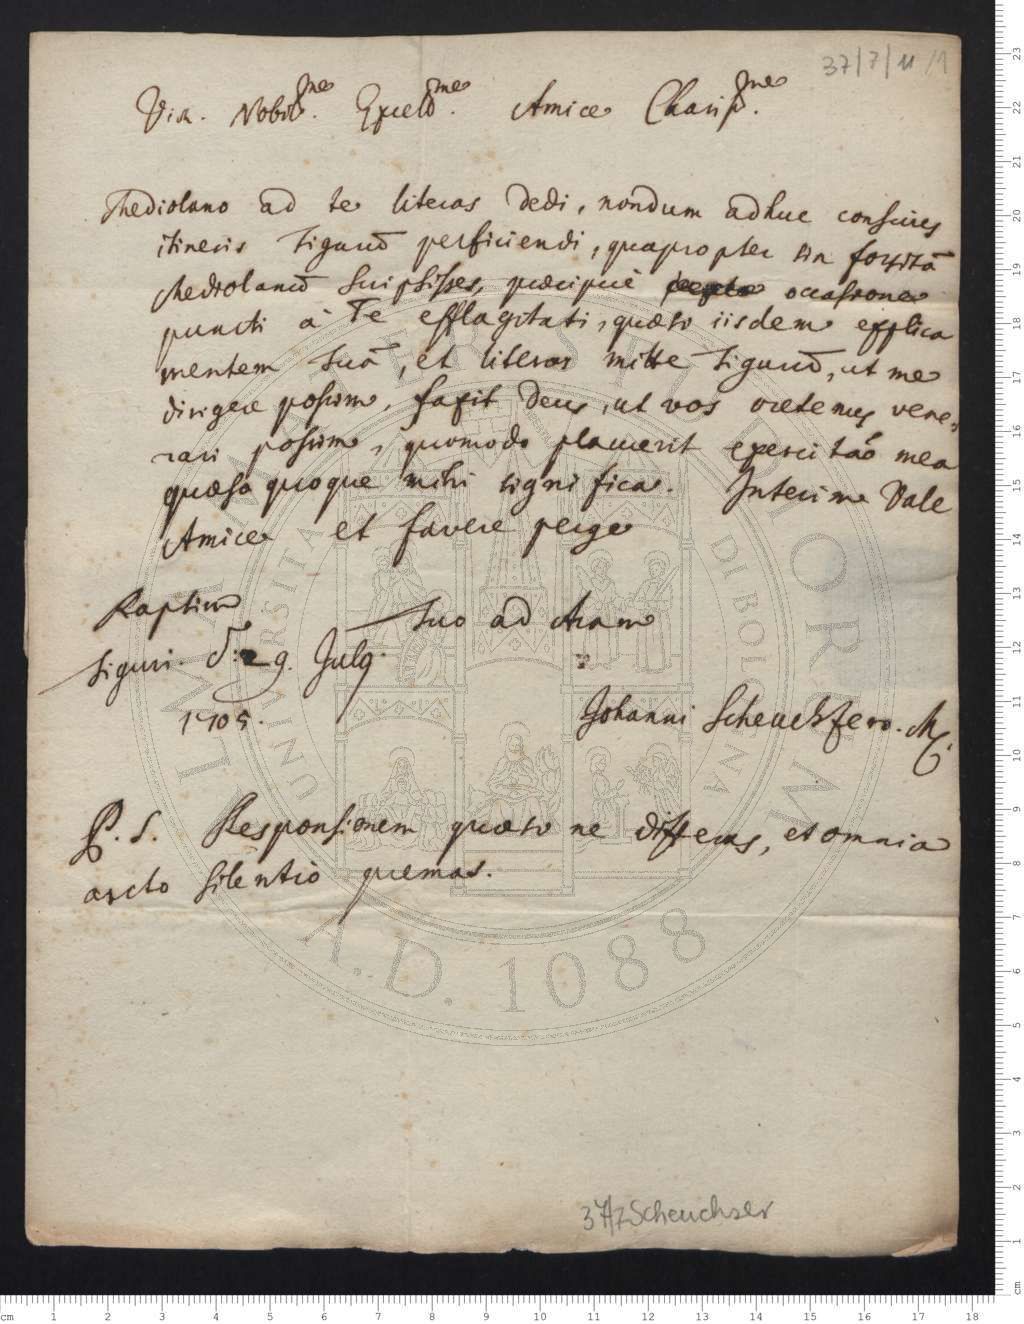 37/7/11/1
Vir. Nobil.me Excell.me Amice Chariss.me
Mediolano ad te literas dedi, nondum adhuc conscius
itineris Tigurū perficiendi, quapropter sin forsitā
Mediolanū scripsisses, praecipuè occasione
puncti à Te efflagitati, quaeso iisdem explica
mentem tuā, et literas mitte Tigurū, ut me
dirigere possim, faxit Deus, ut vos oretenus vene,
rari possim, quomodo placuerit exercitāō mea
quaeso quoque mihi significa. Interim Vale
Amice et favere perge
Raptim
Tuo ad Aram
Tiguri. d. 29. July.
1705.
Johanni Scheuchzero. M.
P. S. Responsionem quaeso ne differas, et omnia
arcto silentio premas.
37/7 Scheuchzer
ALMA MATER STUDIORUM
UNIVERSITÀ DI BOLOGNA
A.D. 1088